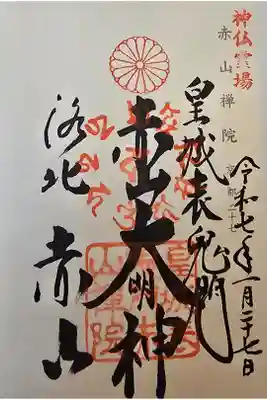 神仏霊場
赤山禅院
令和七年一月二十七日
皇城表鬼門
赤山大明神
洛北 赤山